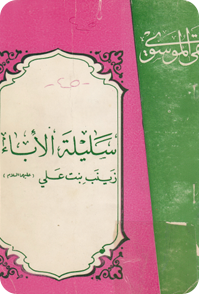 تقي الموسوي
سليلة الأباء
زينب بنت علي (عليها السلام)